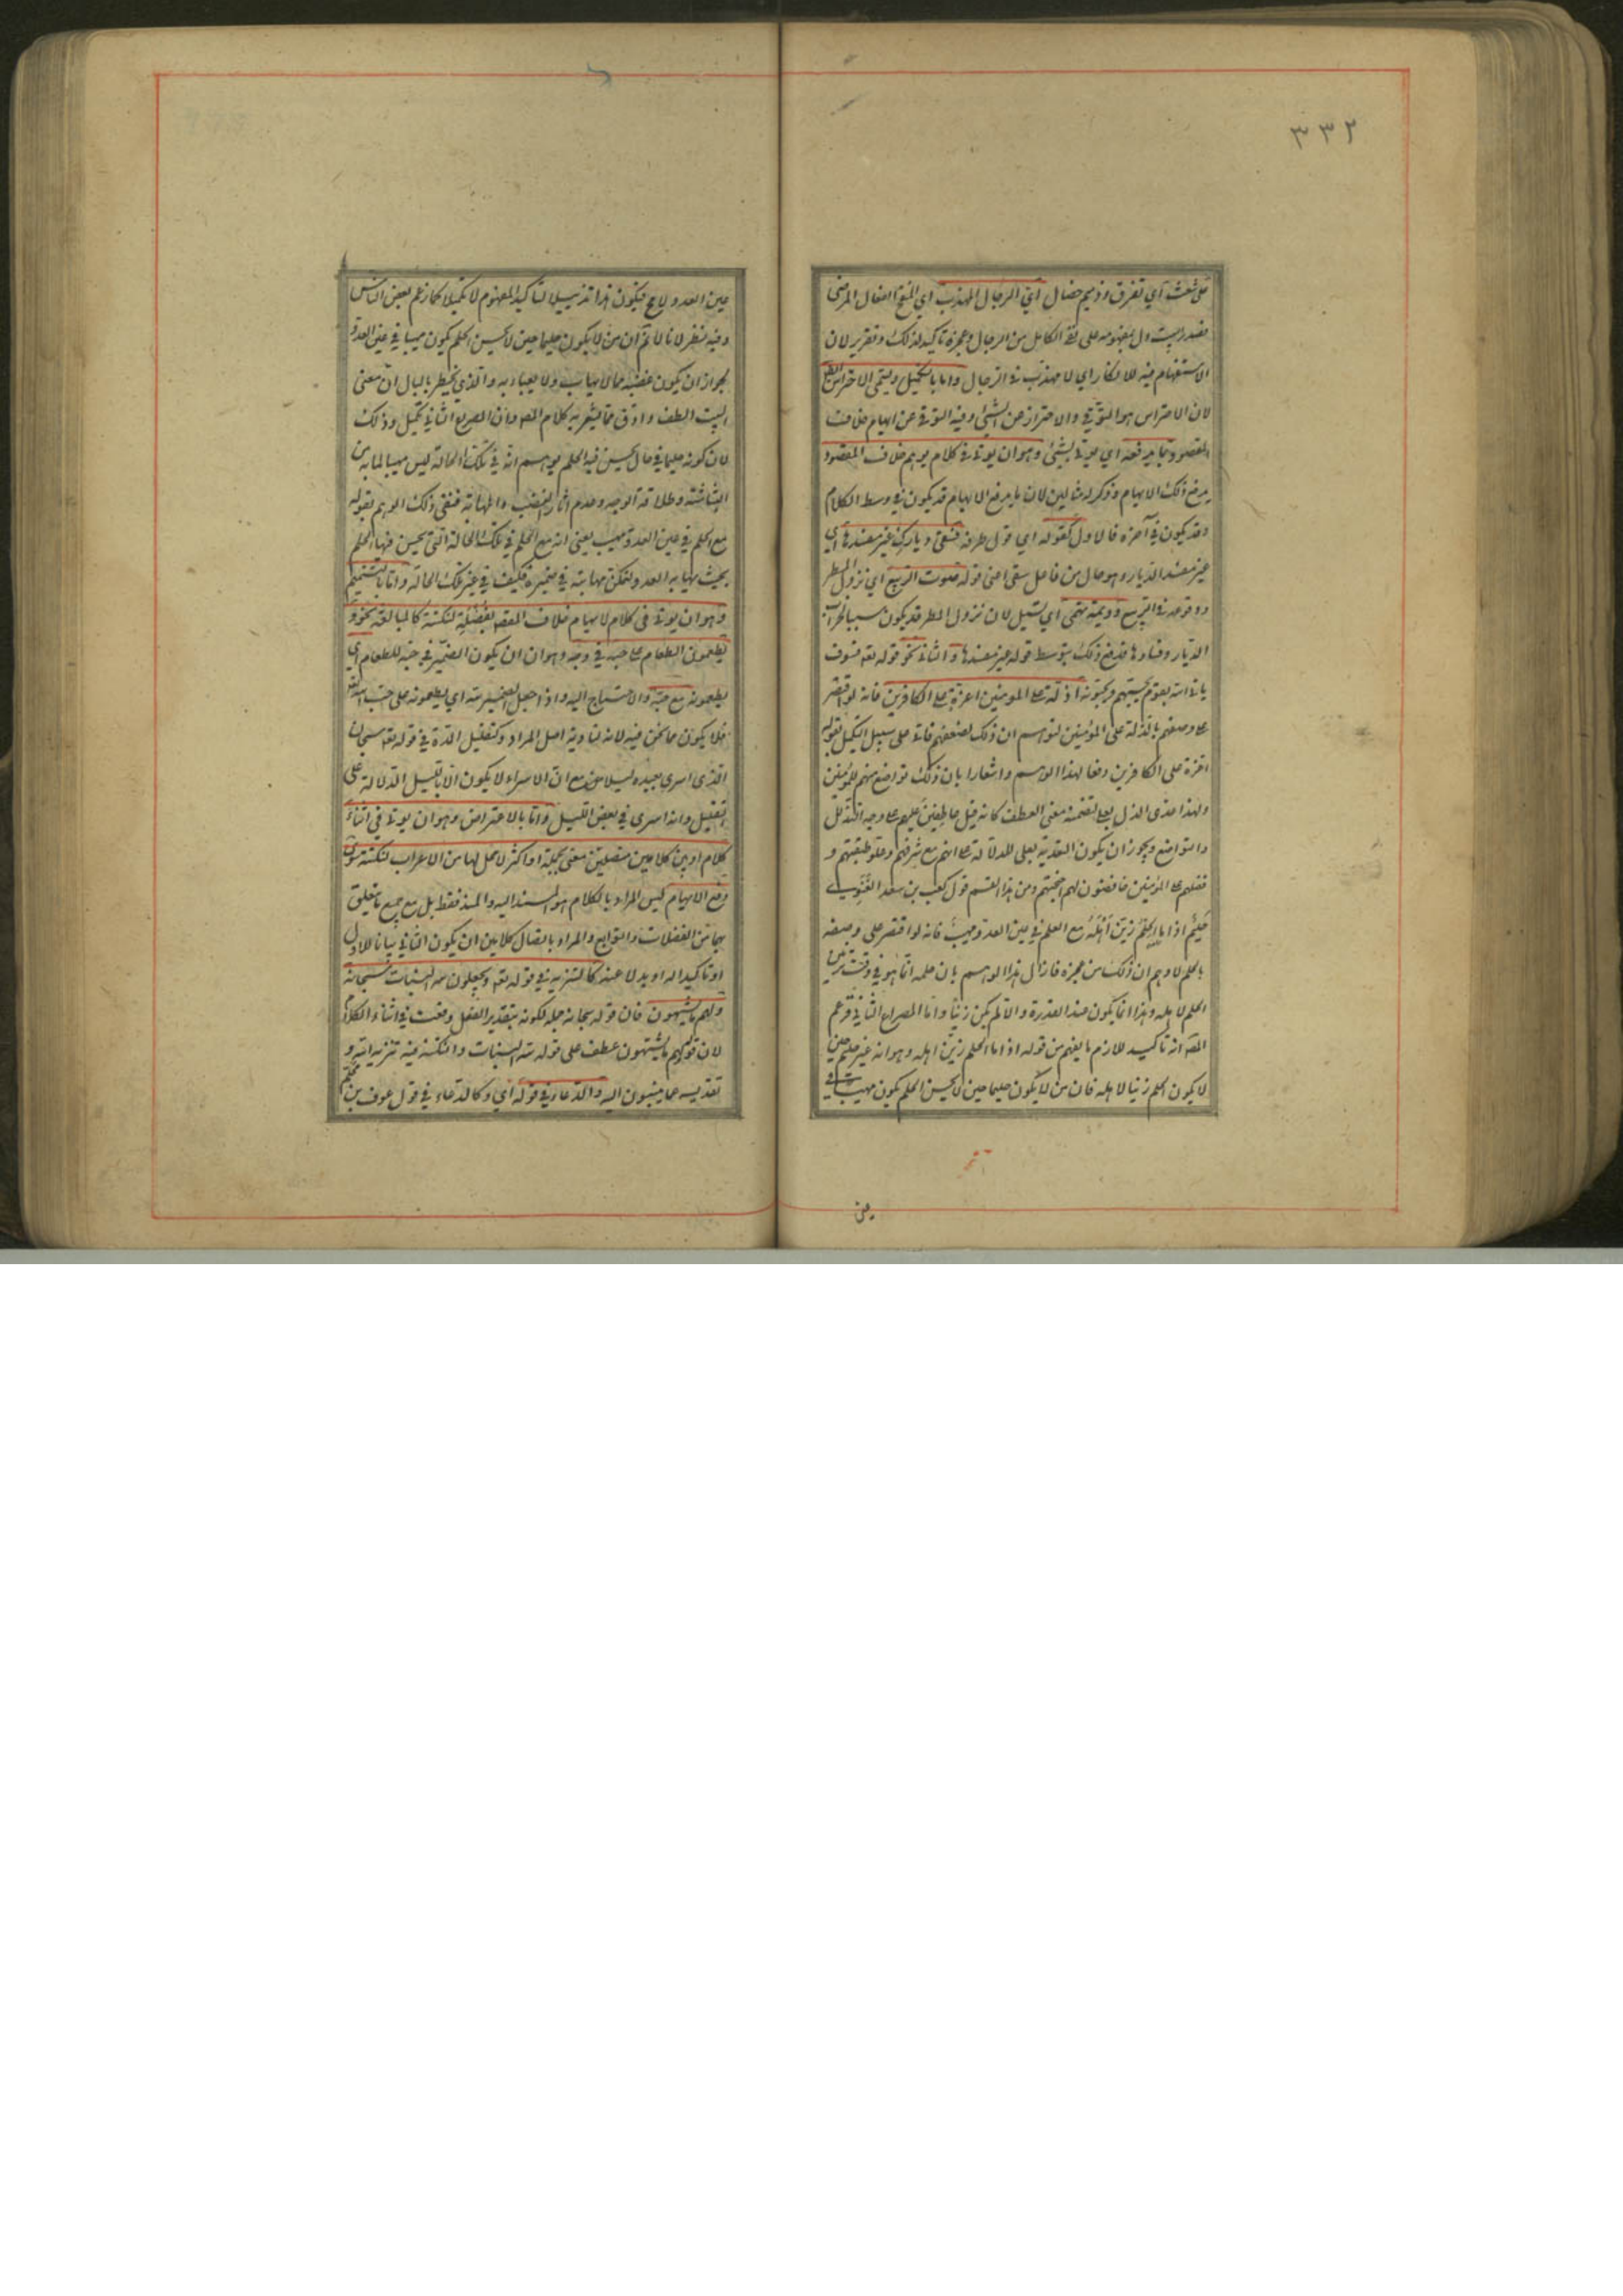 ٣٣٢
على شعث اي تفرق وذميم خصال اي الرجال المهذب اي المنقح الفعال المرضي
فصدر البيت دل بمفهومه على نفي الكامل من الرجال وعجزه تاكيد لذلك وتقرير لان
الاستفهام فيه للانكار اي لا مهذب في الرجال واما بالتكميل ويسمى الاحتراس ايضا
لان الاحتراس هو التوقي والاحتراز عن الشيء وفيه التوقي عن ايهام خلاف
المقصود بما يدفعه اي يؤتى بشيء وهو ان يؤتى في كلام يوهم خلاف المقصود
يدفع ذلك الايهام وذكر له مثالين لان ما يدفع الايهام قد يكون في وسط الكلام
وقد يكون في آخره فالاول كقوله اي قول طرفة فسقى ديارك غير مفسدها اي
غير مفسد الديار وهو حال من فاعل سقى اعني قوله صوب الربيع اي نزول المطر
ووقوعه في الربيع وديمة تهمى اي تسيل لان نزول المطر قد يكون سببا لخراب
الديار وفسادها فدفع ذلك بتوسط قوله غير مفسدها والثاني نحو قوله تعه فسوف
ياتي الله بقوم يحبهم ويحبونه اذلة على المومنين اعزة على الكافرين فانه لو اقتصر
على وصفهم بالذلة على المؤمنين لتوهم ان ذلك لضعفهم فاتى على سبيل التكميل بقوله
اعزة على الكافرين دفعا لهذا الوهم واشعارا بان ذلك تواضع منهم للمؤمنين
ولهذا عدى الذل بعلى لتضمنه معنى العطف كانه قيل عاطفين عليهم على وجه التذلل
والتواضع ويجوز ان يكون التعدية بعلى للدلالة على انهم مع شرفهم وعلو طبقتهم و
فضلهم على المؤمنين خافضون لهم اجنحتهم ومن هذا القسم قول كعب بن سعد الغنوي
حليم اذا ما الحلم زين اهله مع الحلم في عين العدو مهيب فانه لو اقتصر على وصفه
بالحلم لاوهم ان ذلك من عجزه فازال هذا الوهم بان حلمه انما هو في وقت تزيين
الحلم لاهله وهذا انما يكون عند القدرة والا لم يكن زينا واما المصراع الثاني فزعم
المصه انه تاكيد للازم ما يفهم من قوله اذا ما الحلم زين اهله وهو انه غير حليم حين
لا يكون الحلم زينا لاهله فان من لا يكون حليما حين لا يحسن الحلم يكون مهيبا في
عين العدو لا مح فيكون هذا تذييلا لتاكيد المفهوم لا تكميلا كما زعم بعض الناس
وفيه نظر لانا لا نم ان من لا يكون حليما حين لا يحسن الحلم يكون مهيبا في عين العدو
لجواز ان يكون غضبه مما لا يهاب ولا يعبا به والذي يخطر بالبال ان معنى
البيت الطف وادق مما يشعر به كلام المصه وان المصراع الثاني تكميل وذلك
لان كونه حليما في حال يحسن فيه الحلم يوهم انه في تلك الحالة ليس مهيبا لما به من
البشاشة وطلاقة الوجه وعدم آثار الغضب والمهابة فنفى ذلك الوهم بقوله
مع الحلم في عين العدو مهيب يعني انه مع الحلم في تلك الحالة التي يحسن فيها الحلم
بحيث يهابه العدو لتمكن مهابته في ضميره فكيف في غير تلك الحالة واما بالتتميم
وهو ان يؤتى في كلام لا يوهم خلاف المقصه بفضلة لنكتة كالمبالغة نحو و
يطعمون الطعام على حبه في وجه وهو ان يكون الضمير في حبه للطعام اي
يطعمونه مع حبه والاحتياج اليه واذا جعل الضمير لله اي يطعمونه على حب الله تعه
فلا يكون مما نحن فيه لانه لتادية اصل المراد وكتقليل المدة في قوله تعه سبحان
الذي اسرى بعبده ليلا مع ان الاسراء لا يكون الا بالليل للدلالة على
تقليل وانه اسرى في بعض الليل واما بالاعتراض وهو ان يؤتى في اثناء
كلام او بين كلامين متصلين معنى بجملة او اكثر لا محل لها من الاعراب لنكتة سوى
دفع الايهام ليس المراد بالكلام هو المسند اليه والمسند فقط بل مع جميع ما يتعلق
بهما من الفضلات والتوابع والمراد باتصال كلامين ان يكون الثاني بيانا للاول
او تاكيدا له او بدلا عنه كالتنزيه في قوله تعه ويجعلون لله البنات سبحانه
ولهم ما يشتهون فان قوله سبحانه جملة لكونه بتقدير الفعل وقعت في اثناء الكلام
لان قوله ولهم ما يشتهون عطف على قوله لله البنات والنكتة فيه تنزيه الله و
تقديسه عما ينسبون اليه والدعاء في قوله اي وكالدعاء في قول عوف بن محلم
عين